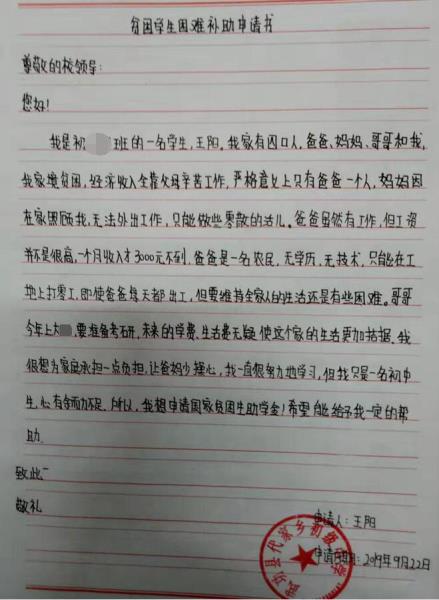 贫困学生困难补助申请书
尊敬的校领导:
您好!
我是初 班的一名学生,王阳。我家有四口人,爸爸、妈妈、哥哥和我,
我家境贫困,经济收入全靠父母辛苦工作,严格意义上只有爸爸一个人,妈妈因
在家照顾我,无法外出工作,只能做些零散的活儿。爸爸虽然有工作,但工资
并不是很高,一个月收入才3000元不到。爸爸是一名农民,无学历,无技术,只能在工
地上打零工,即使爸爸每天都出工,但要维持全家人的生活还是有些困难。哥哥
今年上大 ,要准备考研,未来的学费、生活费无疑使这个家的生活更加拮据。我
很想为家庭承担一点负担,让爸妈少操心,我一直很努力地学习,但我只是一名初中
生,心有余而力不足。所以,我想申请国家贫困生助学金!希望能给予我一定的帮
助。
致此
敬礼
申请人:王阳
申请日期:2019年9月22日
县代家乡初级 学